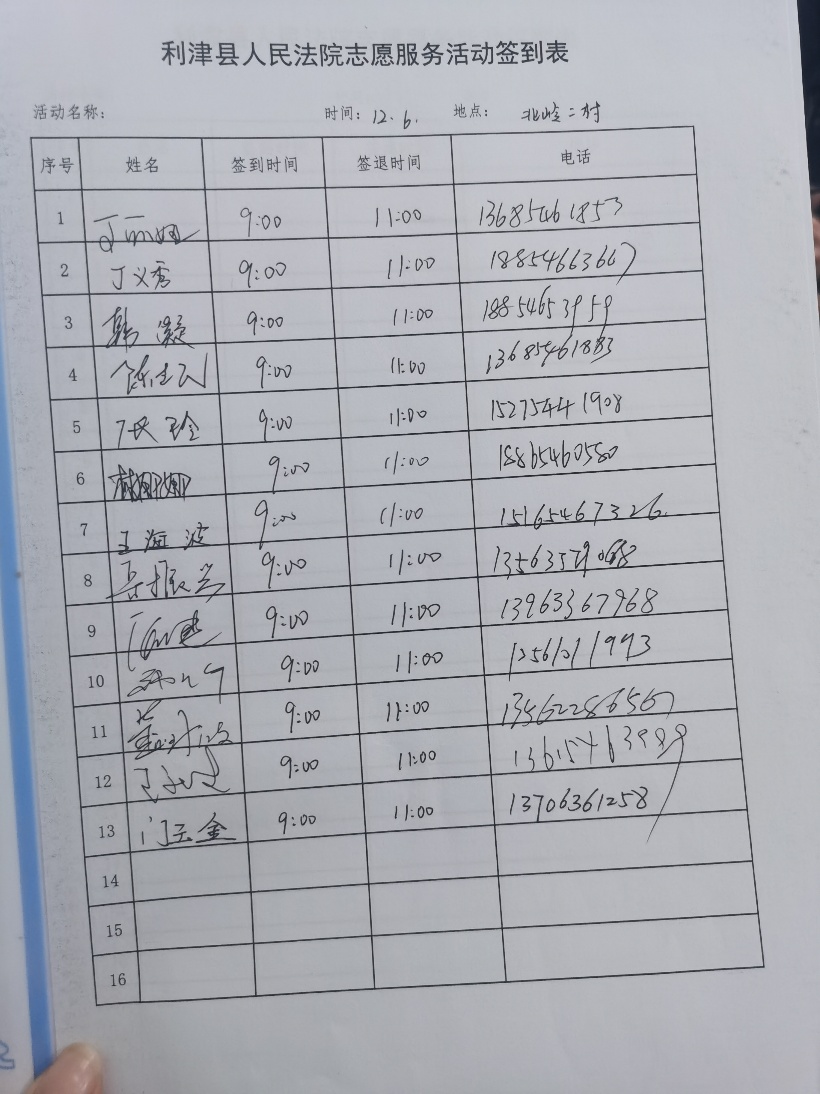 利津县人民法院志愿服务活动签到表
活动名称: 时间: 12.6. 地点: 北岭二村
序号 姓名 签到时间 签退时间 电话
1 9:00 11:00 13685461853
2 丁义秀 9:00 11:00 18854663667
3 韩凝 9:00 11:00 18854653959
4 9:00 11:00 13685461883
5 9:00 11:00 15275441908
6 9:00 11:00 18865460580
7 王海波 9:00 11:00 15165467326
8 9:00 11:00
9 9:00 11:00 13963367968
10 9:00 11:00
11 9:00 11:00 13562286567
12 9:00 11:00
13 门玉金 9:00 11:00 13706361258
14
15
16